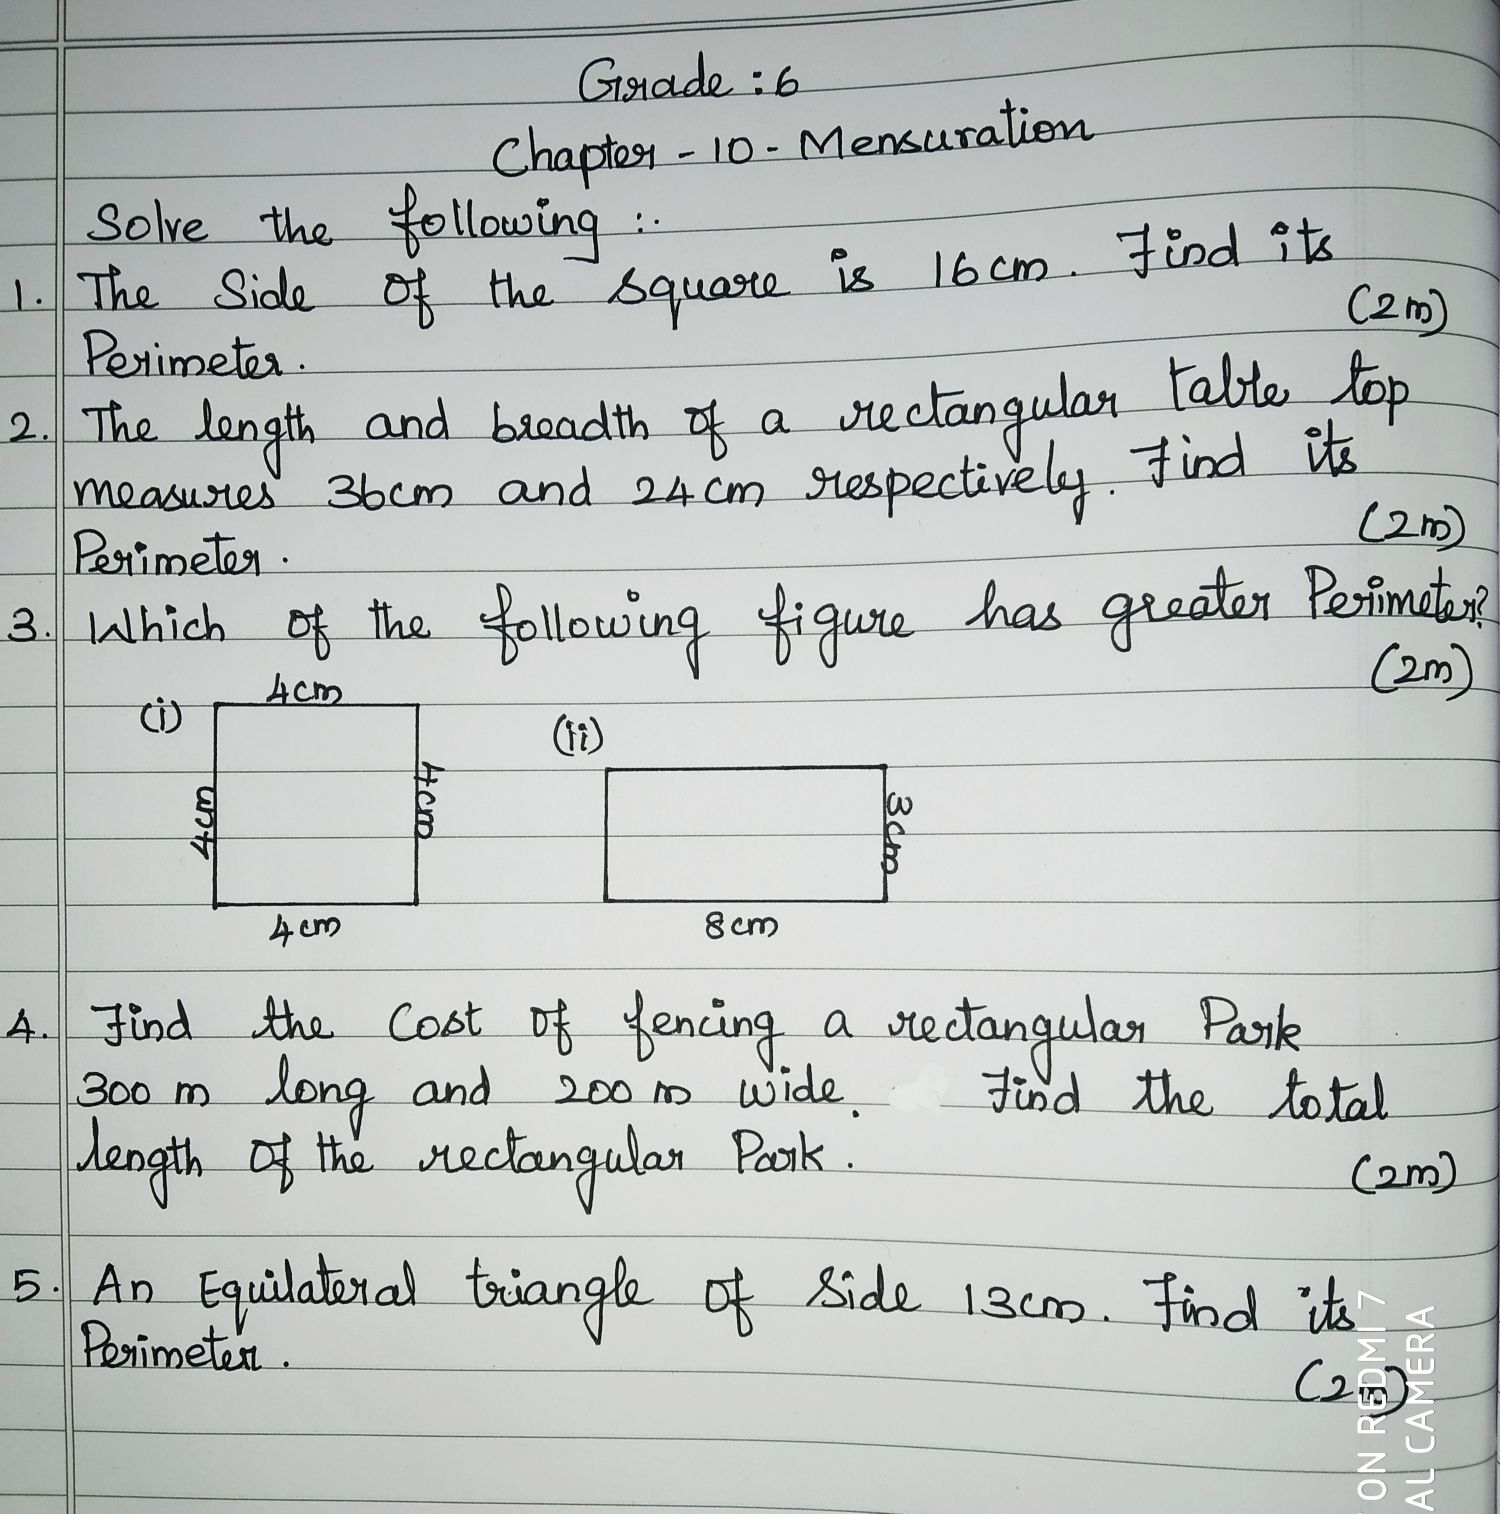 Grade : 6
Chapter - 10 - Mensuration
Solve the following :.
1. The Side of the square is 16cm. Find its
(2m)
Perimeter.
2. The length and breadth of a rectangular table top
measures 36cm and 24cm respectively. Find its
(2m)
Perimeter.
3. Which of the following figure has greater Perimeter?
(2m)
(i)
4cm
4cm
4cm
4cm
(ii)
3cm
8cm
4. Find the Cost of fencing a rectangular Park
300 m long and 200 m wide. Find the total
length of the rectangular Park.
(2m)
5. An Equilateral triangle of Side 13cm. Find its
Perimeter.
(2m)
ON REDMI 7
AL CAMERA